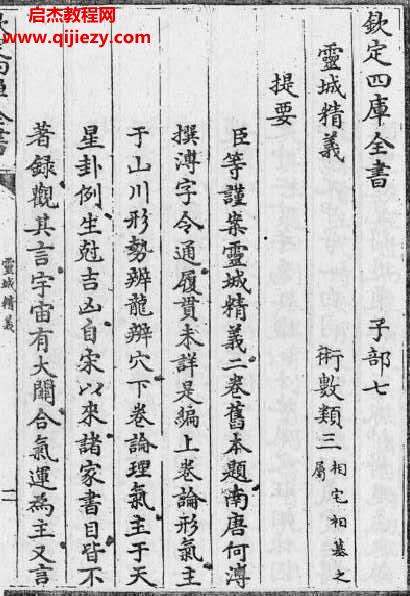 启杰教程网
www.qijiezy.com
欽定四庫全書 子部七
靈城精義 術數類三 相宅相墓之屬
提要
臣等謹案靈城精義二卷舊本題南唐何溥
撰溥字令通履貫未詳是編上卷論形氣主
于山川形勢辨龍辨穴下卷論理氣主于天
星卦例生尅吉凶自宋以來諸家書目皆不
著録觀其言宇宙有大關合氣運為主又言
靈城精義